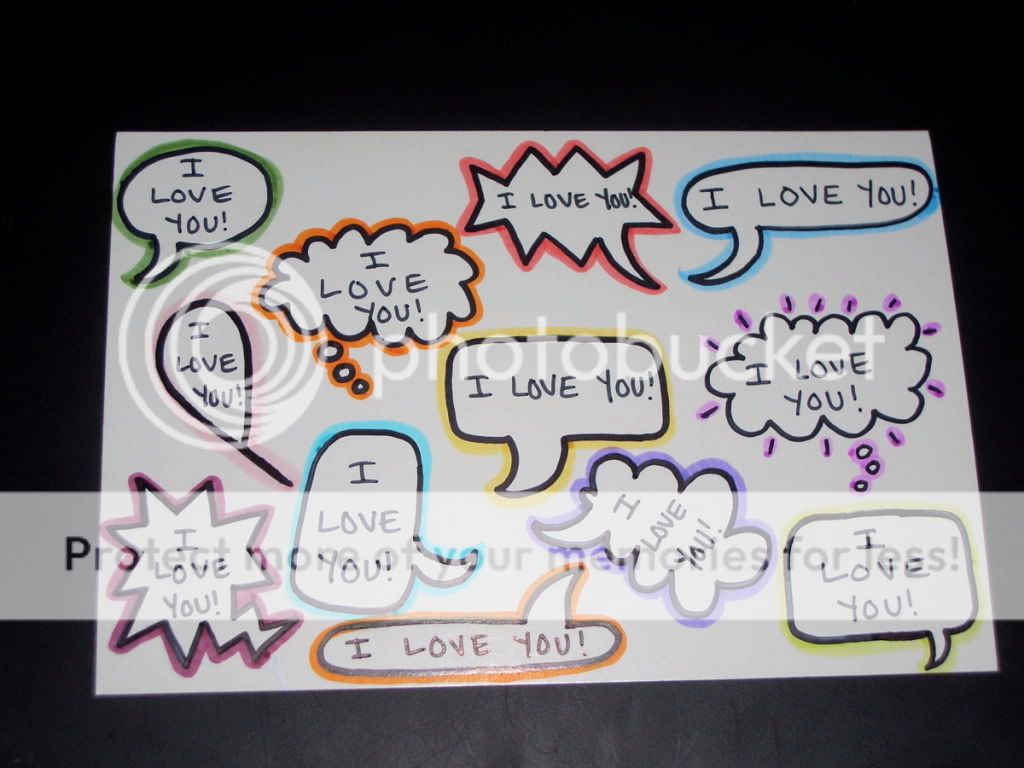 I
LOVE
YOU!
I LOVE YOU!
I LOVE YOU!
I
LOVE
YOU!
I
LOVE
YOU!
photobucket
I LOVE YOU!
I LOVE
YOU!
I
LOVE
YOU!
I
LOVE
YOU!
I
LOVE
YOU!
I
LOVE
YOU!
Protect more of your memories for less!
I LOVE YOU!